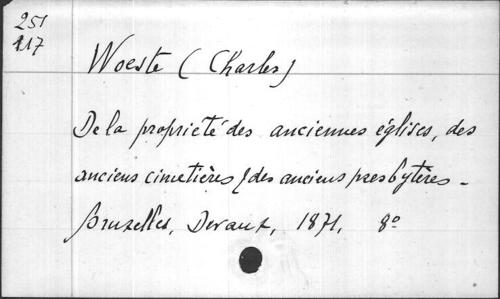 251
117
Woeste (Charles)
De la propriété des anciennes églises, des
anciens cimetières & des anciens presbytères -
Bruxelles, Devaux, 1871, 8º